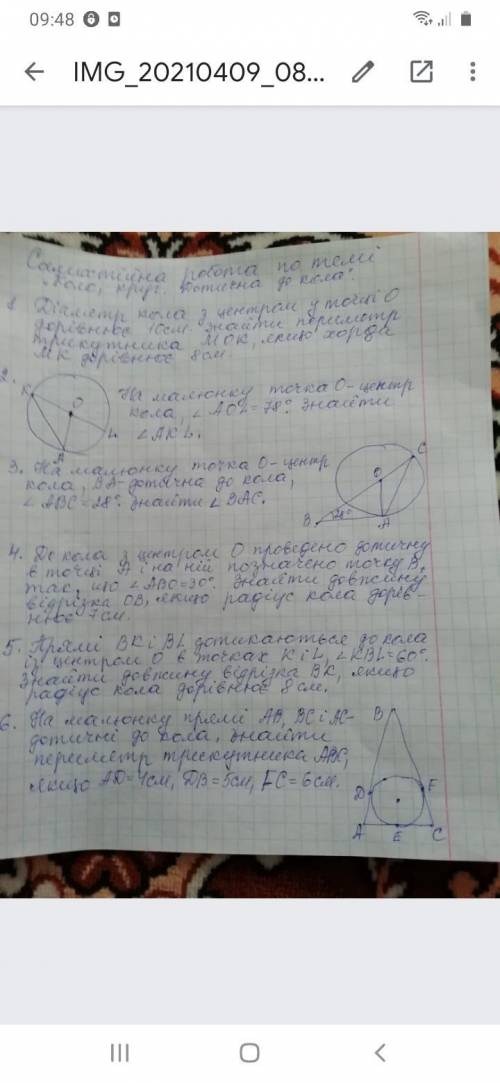 09:48
IMG_20210409_08...
Самостійна робота по темі
"Коло, круг. Дотична до кола".
1. Діаметр кола з центром у точці О
дорівнює 10см. Знайти периметр
трикутника МОК, якщо хорда
МК дорівнює 8см.
2. На малюнку точка О-центр
кола, ∠AOL=78°. Знайти
∠AKL.
K
O
L
A
3. На малюнку точка О-центр
кола, ВА-дотична до кола,
∠ABC=28°. Знайти ∠BAC.
C
O
B 28° A
4. До кола з центром О проведено дотичну
в точці А і на ній позначено точку В,
так, що ∠ABO=30°. Знайти довжину
відрізка ОВ, якщо радіус кола дорів-
нює 7см.
5. Прямі ВК і BL дотикаються до кола
із центром О в точках К і L, ∠KBL=60°.
Знайти довжину відрізка ВК, якщо
радіус кола дорівнює 8см.
6. На малюнку прямі АВ, ВС і АС-
дотичні до кола, знайти
периметр трикутника АВС,
якщо AD=4см, DB=5см, EC=6см.
B
D F
A E C